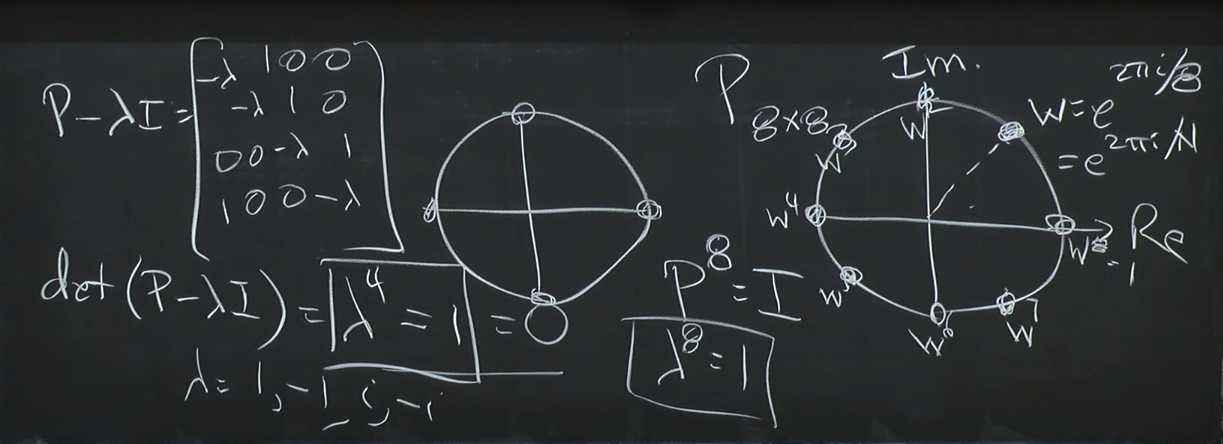 P-λI=
-λ 1 0 0
-λ 1 0
0 0 -λ 1
1 0 0 -λ
det(P-λI)= λ⁴=1 =0
λ=1,-1,i,-i
P
8×8
P⁸=I
λ⁸=1
Im.
w=e^2πi/8
=e^2πi/N
w²
w
w⁴
Re
w⁸=1
w⁵
w⁶
w⁷